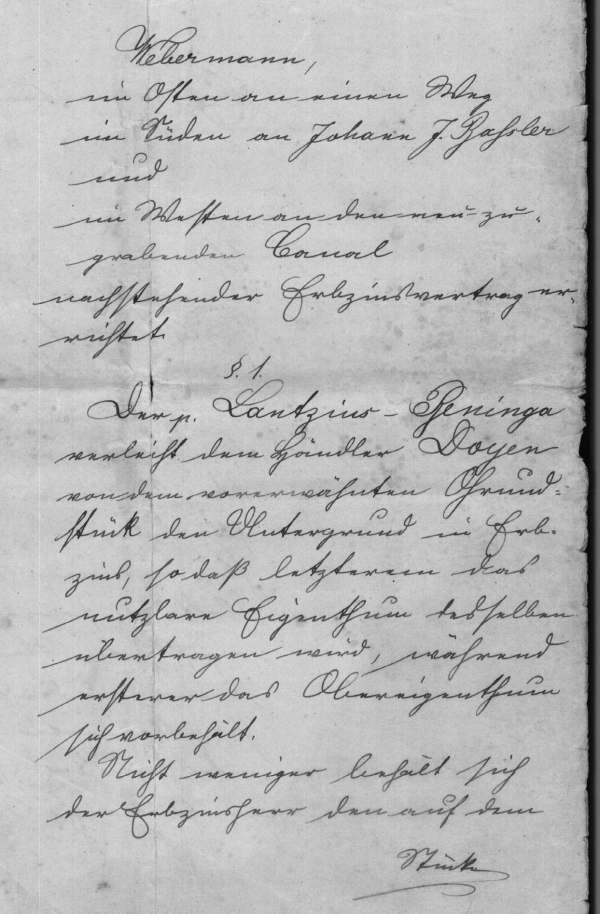 Webermann,
im Osten an einen Weg
im Süden an Johann J. Bassler
und
im Westen an den neu zu
grabenden Canal
nachstehender Erbzinsvertrag er-
richtet.
§. 1.
Der p. Lantzius-Beninga
verleiht dem Händler Doyen
von dem vorerwähnten Grund-
stück den Untergrund in Erb-
zins, so daß letzterem das
nutzbare Eigenthum desselben
übertragen wird, während
ersterer das Obereigenthum
sich vorbehält.
Nicht weniger behält sich
der Erbzinsherr den auf dem
Stücke